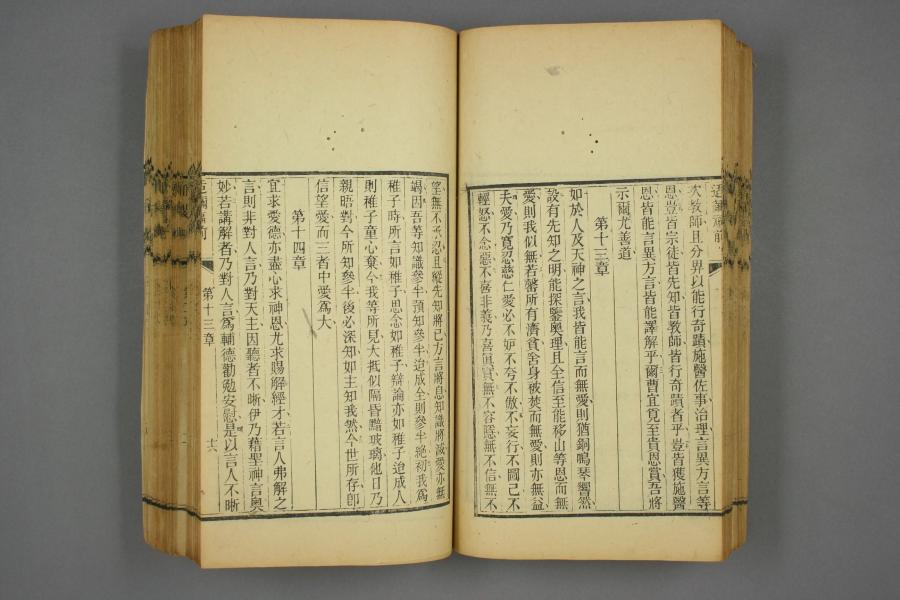 次教師且分界以能行奇蹟施醫佐事治理言異方言等
恩豈皆宗徒皆先知皆教師皆行奇蹟者乎豈皆獲施醫
恩皆能言異方言皆能譯解乎爾曹宜覓至貴恩賞吾將
示爾尤善道
第十三章
如於人及天神之言我皆能言而無愛則猶銅鳴琴響然
設有先知之明能探鑒奧理且全信至能移山等恩而無
愛則我似無若罄所有濟貧舍身被焚而無愛則亦無益
夫愛乃寬忍慈仁愛必不妒不夸不傲不妄行不圖己不
輕怒不念惡不喜非義乃喜真實無不容隱無不信無不
望無不予忍且縱先知將已方言將息知識將滅愛亦無
竭因吾等知識參半預知參半迨成全則參半絕初我為
稚子時所言如稚子思念如稚子辯論亦如稚子迨成人
則稚子童心棄今我等所見大抵似隔昏黯玻璃他日乃
親晤對今所知參半後必深知如主知我然今世所存即
信望愛而三者中愛為大
第十四章
宜求愛德亦盡心求神恩尤求賜解經才若言人弗解之
言則非對人言乃對天主因聽者不晰伊乃藉聖神言奧
妙若講解者乃對人言為輔德勸勉安慰是以言人不晰
第十三章